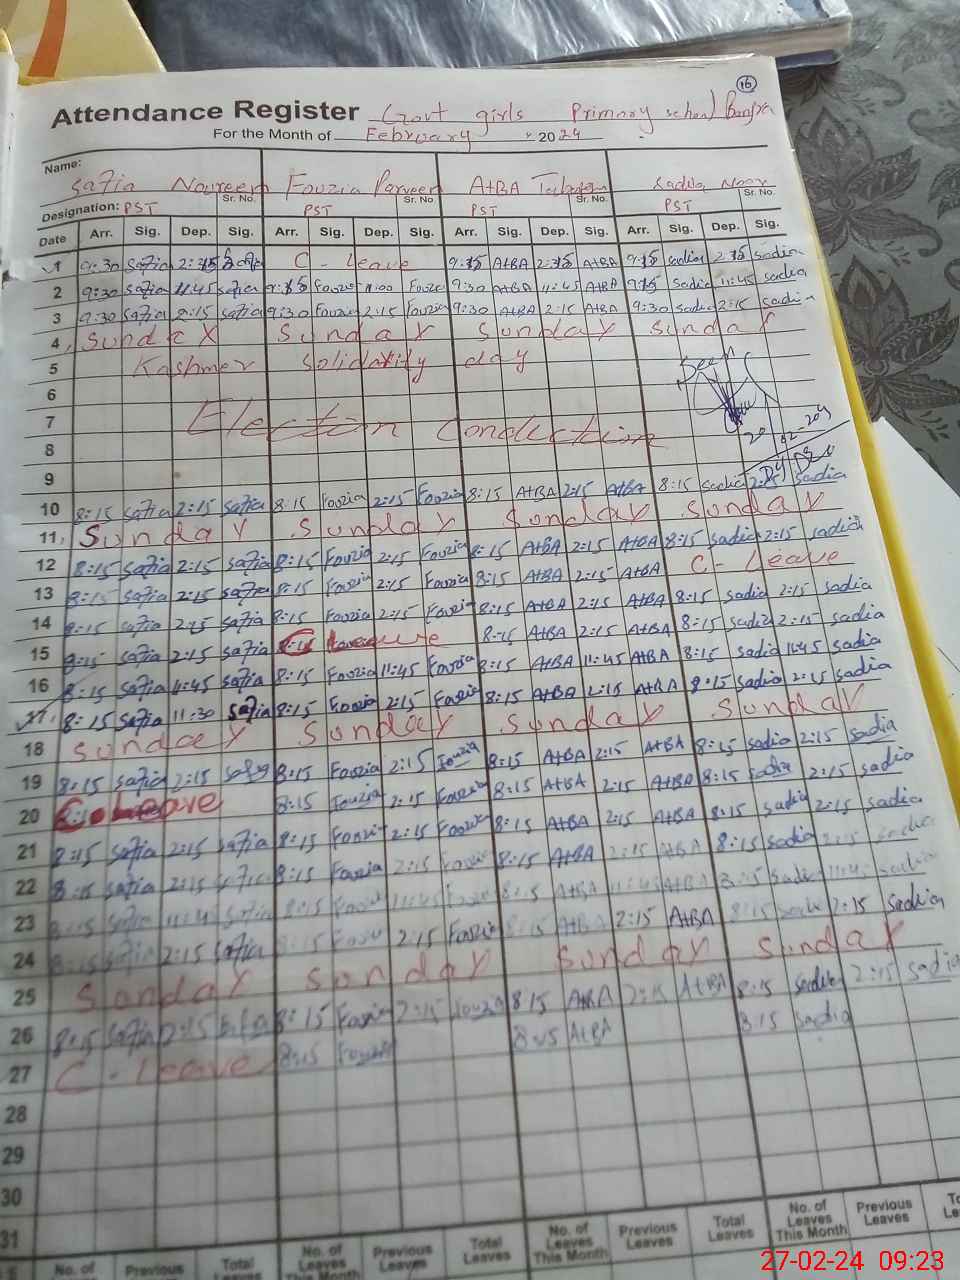 16
Attendance Register Govt girls Primary school
For the Month of February 2024
Name:
Safia Noureen Fouzia Parveen AtBA Sadia Noor
Designation: PST Sr. No. PST Sr. No. PST Sr. No. PST Sr. No.
Date Arr. Sig. Dep. Sig. Arr. Sig. Dep. Sig. Arr. Sig. Dep. Sig. Arr. Sig. Dep. Sig.
1 9:30 Safia C - Leave AtBA AtBA sadia sadia
2 9:30 Safia 11:45 safia Fouzia Fouzia 9:30 AtBA 11:45 AtBA sadia 11:45 sadia
3 9:30 Safia 2:15 safia 9:30 Fouzia 2:15 Fouzia 9:30 AtBA 2:15 AtBA 9:30 sadia 2:15 sadia
4 Sunday Sunday Sunday
5 Kashmer Solidatify day
6
7 Election Conduction
8
9
10 8:15 Safia 2:15 Safia 8:15 Fouzia 2:15 Fouzia 8:15 AtBA 2:15 AtBA 8:15 sadia sadia
11 Sunday Sunday Sunday Sunday
12 8:15 Safia 2:15 Safia 8:15 Fouzia 2:15 Fouzia 8:15 AtBA 2:15 AtBA 8:15 sadia 2:15 sadia
13 8:15 Safia 2:15 Safia 8:15 Fouzia 2:15 Fouzia 8:15 AtBA 2:15 AtBA C - Leave
14 8:15 Safia 2:15 safia 8:15 Fouzia 2:15 8:15 AtBA 2:15 AtBA 8:15 sadia 2:15 sadia
15 8:15 Safia 2:15 safia 8:15 AtBA 2:15 AtBA 8:15 sadia 2:15 sadia
16 8:15 safia 11:45 safia 8:15 Fouzia 11:45 Fouzia 8:15 AtBA 11:45 AtBA 8:15 sadia 11:45 sadia
17 8:15 Safia 11:30 Safia 8:15 Fouzia 2:15 Fouzia 8:15 AtBA 2:15 AtBA 8:15 sadia 2:15 sadia
18 Sunday Sunday Sunday
19 8:15 Safia 2:15 8:15 Fouzia 2:15 Fouzia 8:15 AtBA 2:15 AtBA 8:15 sadia 2:15 sadia
20 Leave 8:15 Fouzia 2:15 Fouzia 8:15 AtBA 2:15 AtBA 8:15 sadia 2:15 sadia
21 8:15 Safia 2:15 safia 8:15 2:15 8:15 AtBA 2:15 AtBA 8:15 sadia 2:15 sadia
22 8:15 safia 2:15 safia 8:15 Fouzia 2:15 8:15 AtBA 2:15 AtBA 8:15 sadia 2:15 sadia
23 8:15 Safia 11:45 Safia 8:15 11:45 8:15 AtBA 11:45 AtBA 8:15 sadia 11:45
24 8:15 Safia 2:15 Safia 8:15 2:15 Fouzia 8:15 AtBA 2:15 AtBA 8:15 2:15 sadia
25 Sunday Sunday Sunday Sunday
26 8:15 Safia 2:15 8:15 2:15 8:15 AtBA 2:15 AtBA 8:15 sadia 2:15 sadia
27 C - Leave 8:15 8:15 AtBA 8:15 sadia
28
29
30
31
No. of No. of Leaves This Month Previous Leaves Total Leaves No. of Leaves This Month Previous Leaves Total Leaves No. of Leaves This Month Previous Leaves
27-02-24 09:23